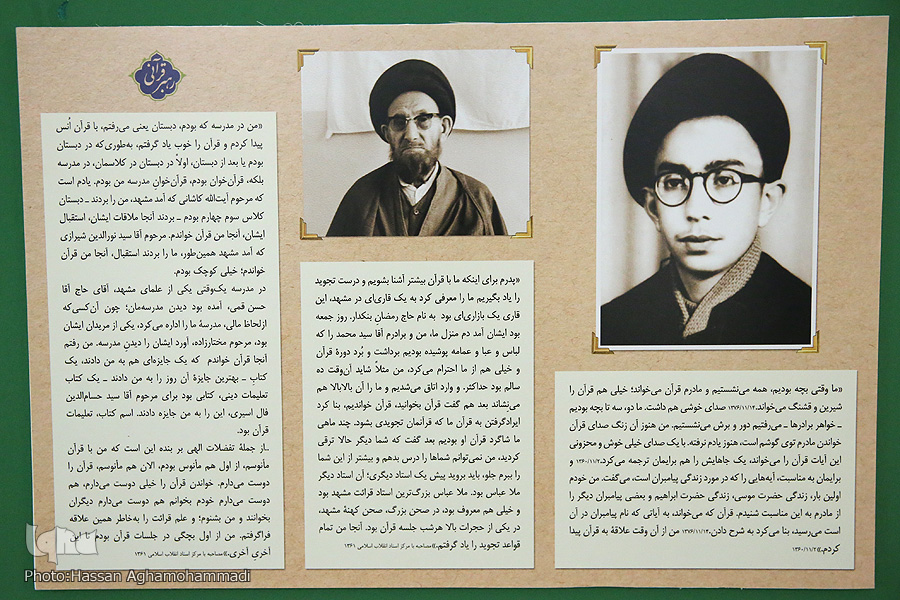 رهبر قرآنی
«ما وقتی بچه بودیم، همه می‌نشستیم و مادرم قرآن می‌خواند؛ خیلی هم قرآن را
شیرین و قشنگ می‌خواند.۱۳۷۶/۱۱/۱۳ صدای خوشی هم داشت. ما دو، سه تا بچه بودیم
ـ خواهر برادرها ـ می‌رفتیم دور و برش می‌نشستیم. من هنوز آن زنگ صدای قرآن
خواندن مادرم توی گوشم است، هنوز یادم نرفته. با یک صدای خیلی خوش و محزونی
این آیات قرآن را می‌خواند، یک جاهایش را هم برایمان ترجمه می‌کرد.۱۳۶۰/۱۱/۲ و
برایمان به مناسبت، آیه‌هایی را که در مورد زندگی پیامبران است، می‌گفت. من خودم
اولین بار، زندگی حضرت موسی، زندگی حضرت ابراهیم و بعضی پیامبران دیگر را
از مادرم به این مناسبت شنیدم. قرآن که می‌خواند، به آیاتی که نام پیامبران در آن
است می‌رسید، بنا می‌کرد به شرح دادن.۱۳۷۶/۱۱/۱۳ من از آن وقت علاقهٔ به قرآن پیدا
کردم.»۱۳۶۰/۱۱/۲
«پدرم برای اینکه ما با قرآن بیشتر آشنا بشویم و درست تجوید
را یاد بگیریم ما را معرفی کرد به یک قاری‌ای در مشهد، این
قاری یک بازاری‌ای بود به نام حاج رمضان بنکدار. روز جمعه
بود ایشان آمد دم منزل ما، من و برادرم آقا سید محمد را که
لباس و عبا و عمامه پوشیده بودیم برداشت و بُرد دورهٔ قرآن
و خیلی هم از ما احترام می‌کرد، من مثلاً شاید آن‌وقت ده
سالم بود حداکثر. و وارد اتاق می‌شدیم و ما را آن بالابالا هم
می‌نشاند بعد هم گفت قرآن بخوانید، قرآن خواندیم، بنا کرد
ایرادگرفتن به قرآن ما که قرآنمان تجویدی بشود. چند ماهی
ما شاگرد قرآن او بودیم بعد گفت که شما دیگر حالا ترقی
کردید، من نمی‌توانم شماها را درس بدهم و بیشتر از این شما
را ببرم جلو، باید بروید پیش یک استاد دیگری؛ آن استاد دیگر
ملا عباس بود. ملا عباس بزرگ‌ترین استاد قرائت مشهد بود
و خیلی هم معروف بود، در صحن بزرگ، صحن کهنهٔ مشهد،
در یکی از حجرات بالا هرشب جلسه قرآن بود. آنجا من تمام
قواعد تجوید را یاد گرفتم.»مصاحبه با مرکز اسناد انقلاب اسلامی ۱۳۶۱
«من در مدرسه که بودم، دبستان یعنی می‌رفتم، با قرآن اُنس
پیدا کردم و قرآن را خوب یاد گرفتم، به‌طوری‌که در دبستان
بودم یا بعد از دبستان، اولاً در دبستان در کلاسمان، در مدرسه
بلکه، قرآن‌خوان بودم، قرآن‌خوان مدرسه من بودم. یادم است
که مرحوم آیت‌الله کاشانی که آمد مشهد، من را بردند ـ دبستان
کلاس سوم چهارم بودم ـ بردند آنجا ملاقات ایشان، استقبال
ایشان، آنجا من قرآن خواندم. مرحوم آقا سید نورالدین شیرازی
که آمد مشهد همین‌طور، ما را بردند استقبال، آنجا من قرآن
خواندم؛ خیلی کوچک بودم.
در مدرسه یک‌وقتی یکی از علمای مشهد، آقای حاج آقا
حسن قمی، آمده بود دیدن مدرسه‌مان؛ چون آن‌کسی‌که
ازلحاظ مالی، مدرسهٔ ما را اداره می‌کرد، یکی از مریدان ایشان
بود، مرحوم مختارزاده، آورد ایشان را دیدنِ مدرسه. من رفتم
آنجا قرآن خواندم که یک جایزه‌ای هم به من دادند، یک
کتاب ـ بهترین جایزهٔ آن روز را به من دادند ـ یک کتاب
تعلیمات دینی، کتابی بود برای مرحوم آقا سید حسام‌الدین
فال اسیری، این را به من جایزه دادند. اسم کتاب، تعلیمات
قرآن بود.
..از جملهٔ تفضلات الهی بر بنده این است که من با قرآن
مأنوسم، از اول هم مأنوس بودم، الان هم مأنوسم، قرآن را
دوست می‌دارم. خواندن قرآن را خیلی دوست می‌دارم، هم
دوست می‌دارم خودم بخوانم هم دوست می‌دارم دیگران
بخوانند و من بشنوم؛ و علم قرائت را به‌خاطر همین علاقه
فراگرفتم. من از اول بچگی در جلسات قرآن بودم تا این
آخریِ آخری.»مصاحبه با مرکز اسناد انقلاب اسلامی ۱۳۶۱
iqna
Photo:Hassan Aghamohammadi